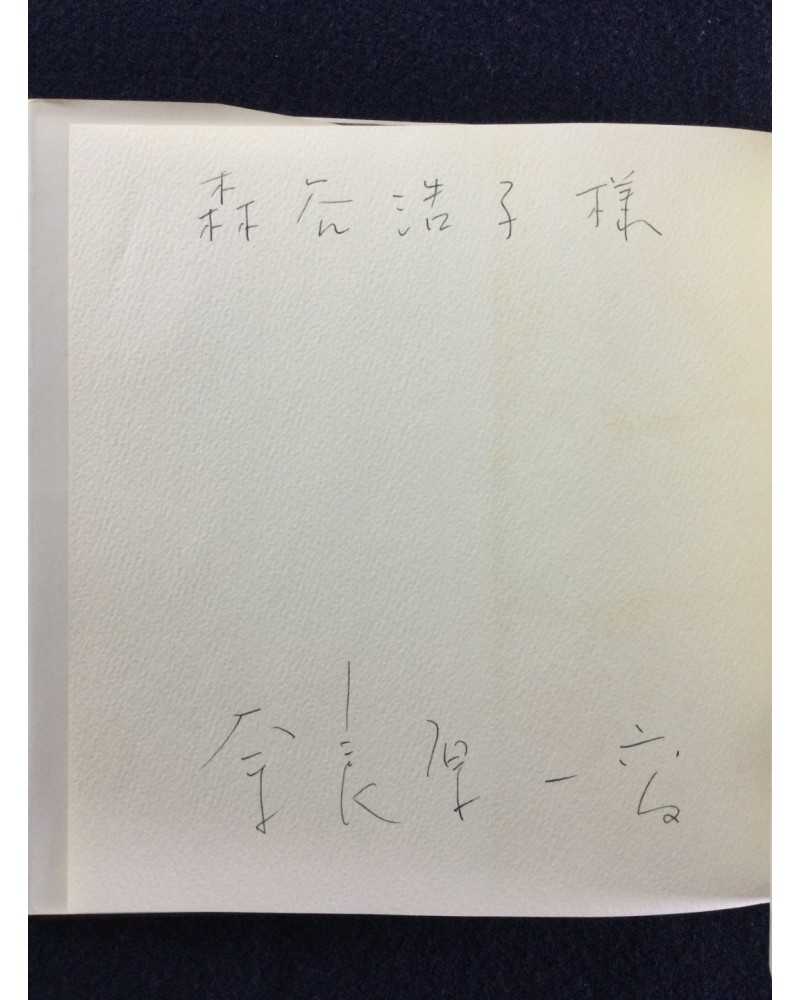 森谷浩子様
奈良原一高